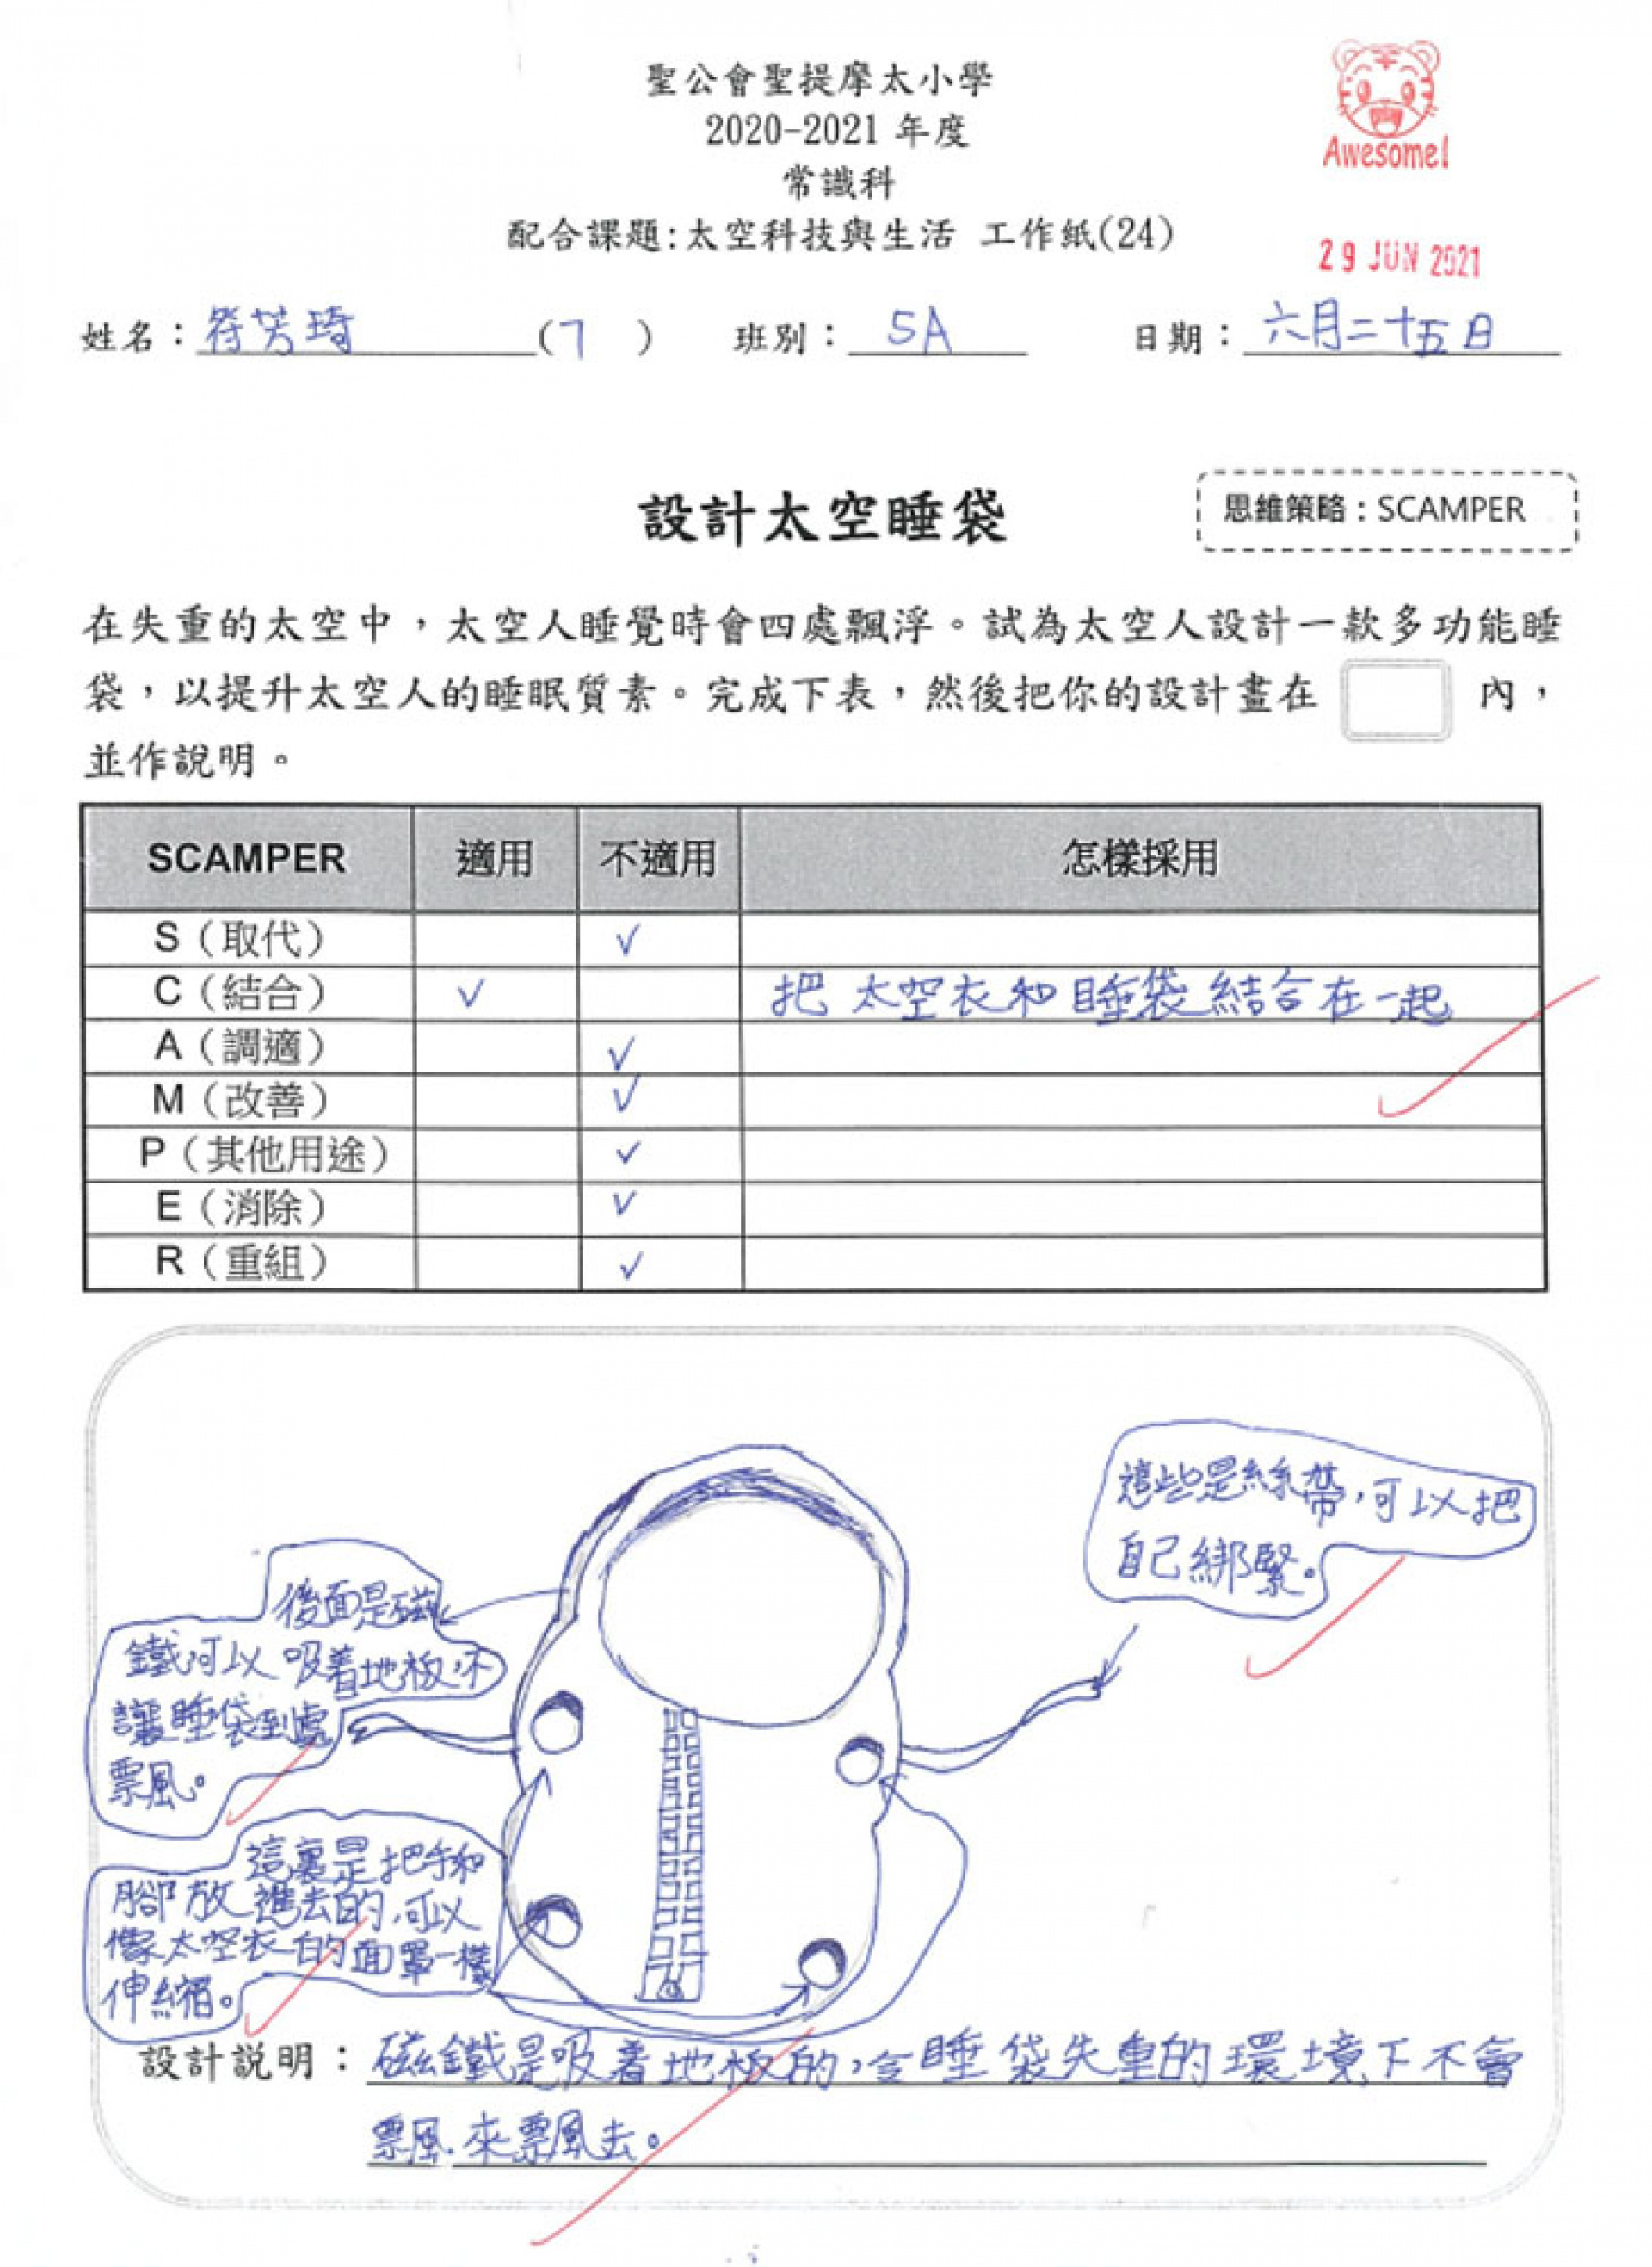 聖公會聖提摩太小學
2020-2021 年度
常識科
配合課題:太空科技與生活 工作紙(24)
Awesome!
29 JUN 2021
姓名：符芳琦 (7) 班別：5A 日期：六月二十五日
設計太空睡袋
思維策略：SCAMPER
在失重的太空中，太空人睡覺時會四處飄浮。試為太空人設計一款多功能睡
袋，以提升太空人的睡眠質素。完成下表，然後把你的設計畫在 內，
並作說明。
SCAMPER 適用 不適用 怎樣採用
S（取代） ✓
C（結合） ✓ 把太空衣和睡袋結合在一起
A（調適） ✓
M（改善） ✓
P（其他用途） ✓
E（消除） ✓
R（重組） ✓
這些是絲帶，可以把
自己綁緊。
後面是磁
鐵可以吸着地板，不
讓睡袋到處
飄。
這裏是把手和
腳放進去的，可以
像太空衣的面罩一樣
伸縮。
設計説明：磁鐵是吸着地板的，令睡袋失重的環境下不會
飄來飄去。